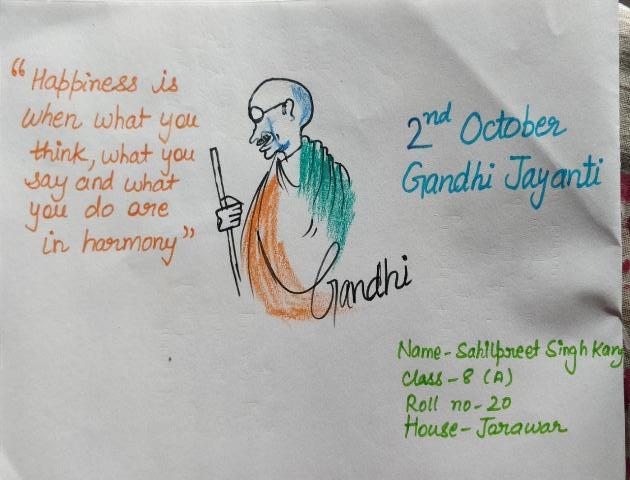 “Happiness is
when what you
think, what you
say and what
you do are
in harmony”
2nd October
Gandhi Jayanti
Gandhi
Name - Sahilpreet Singh Kang
Class - 8 (A)
Roll no - 20
House - Jarawar